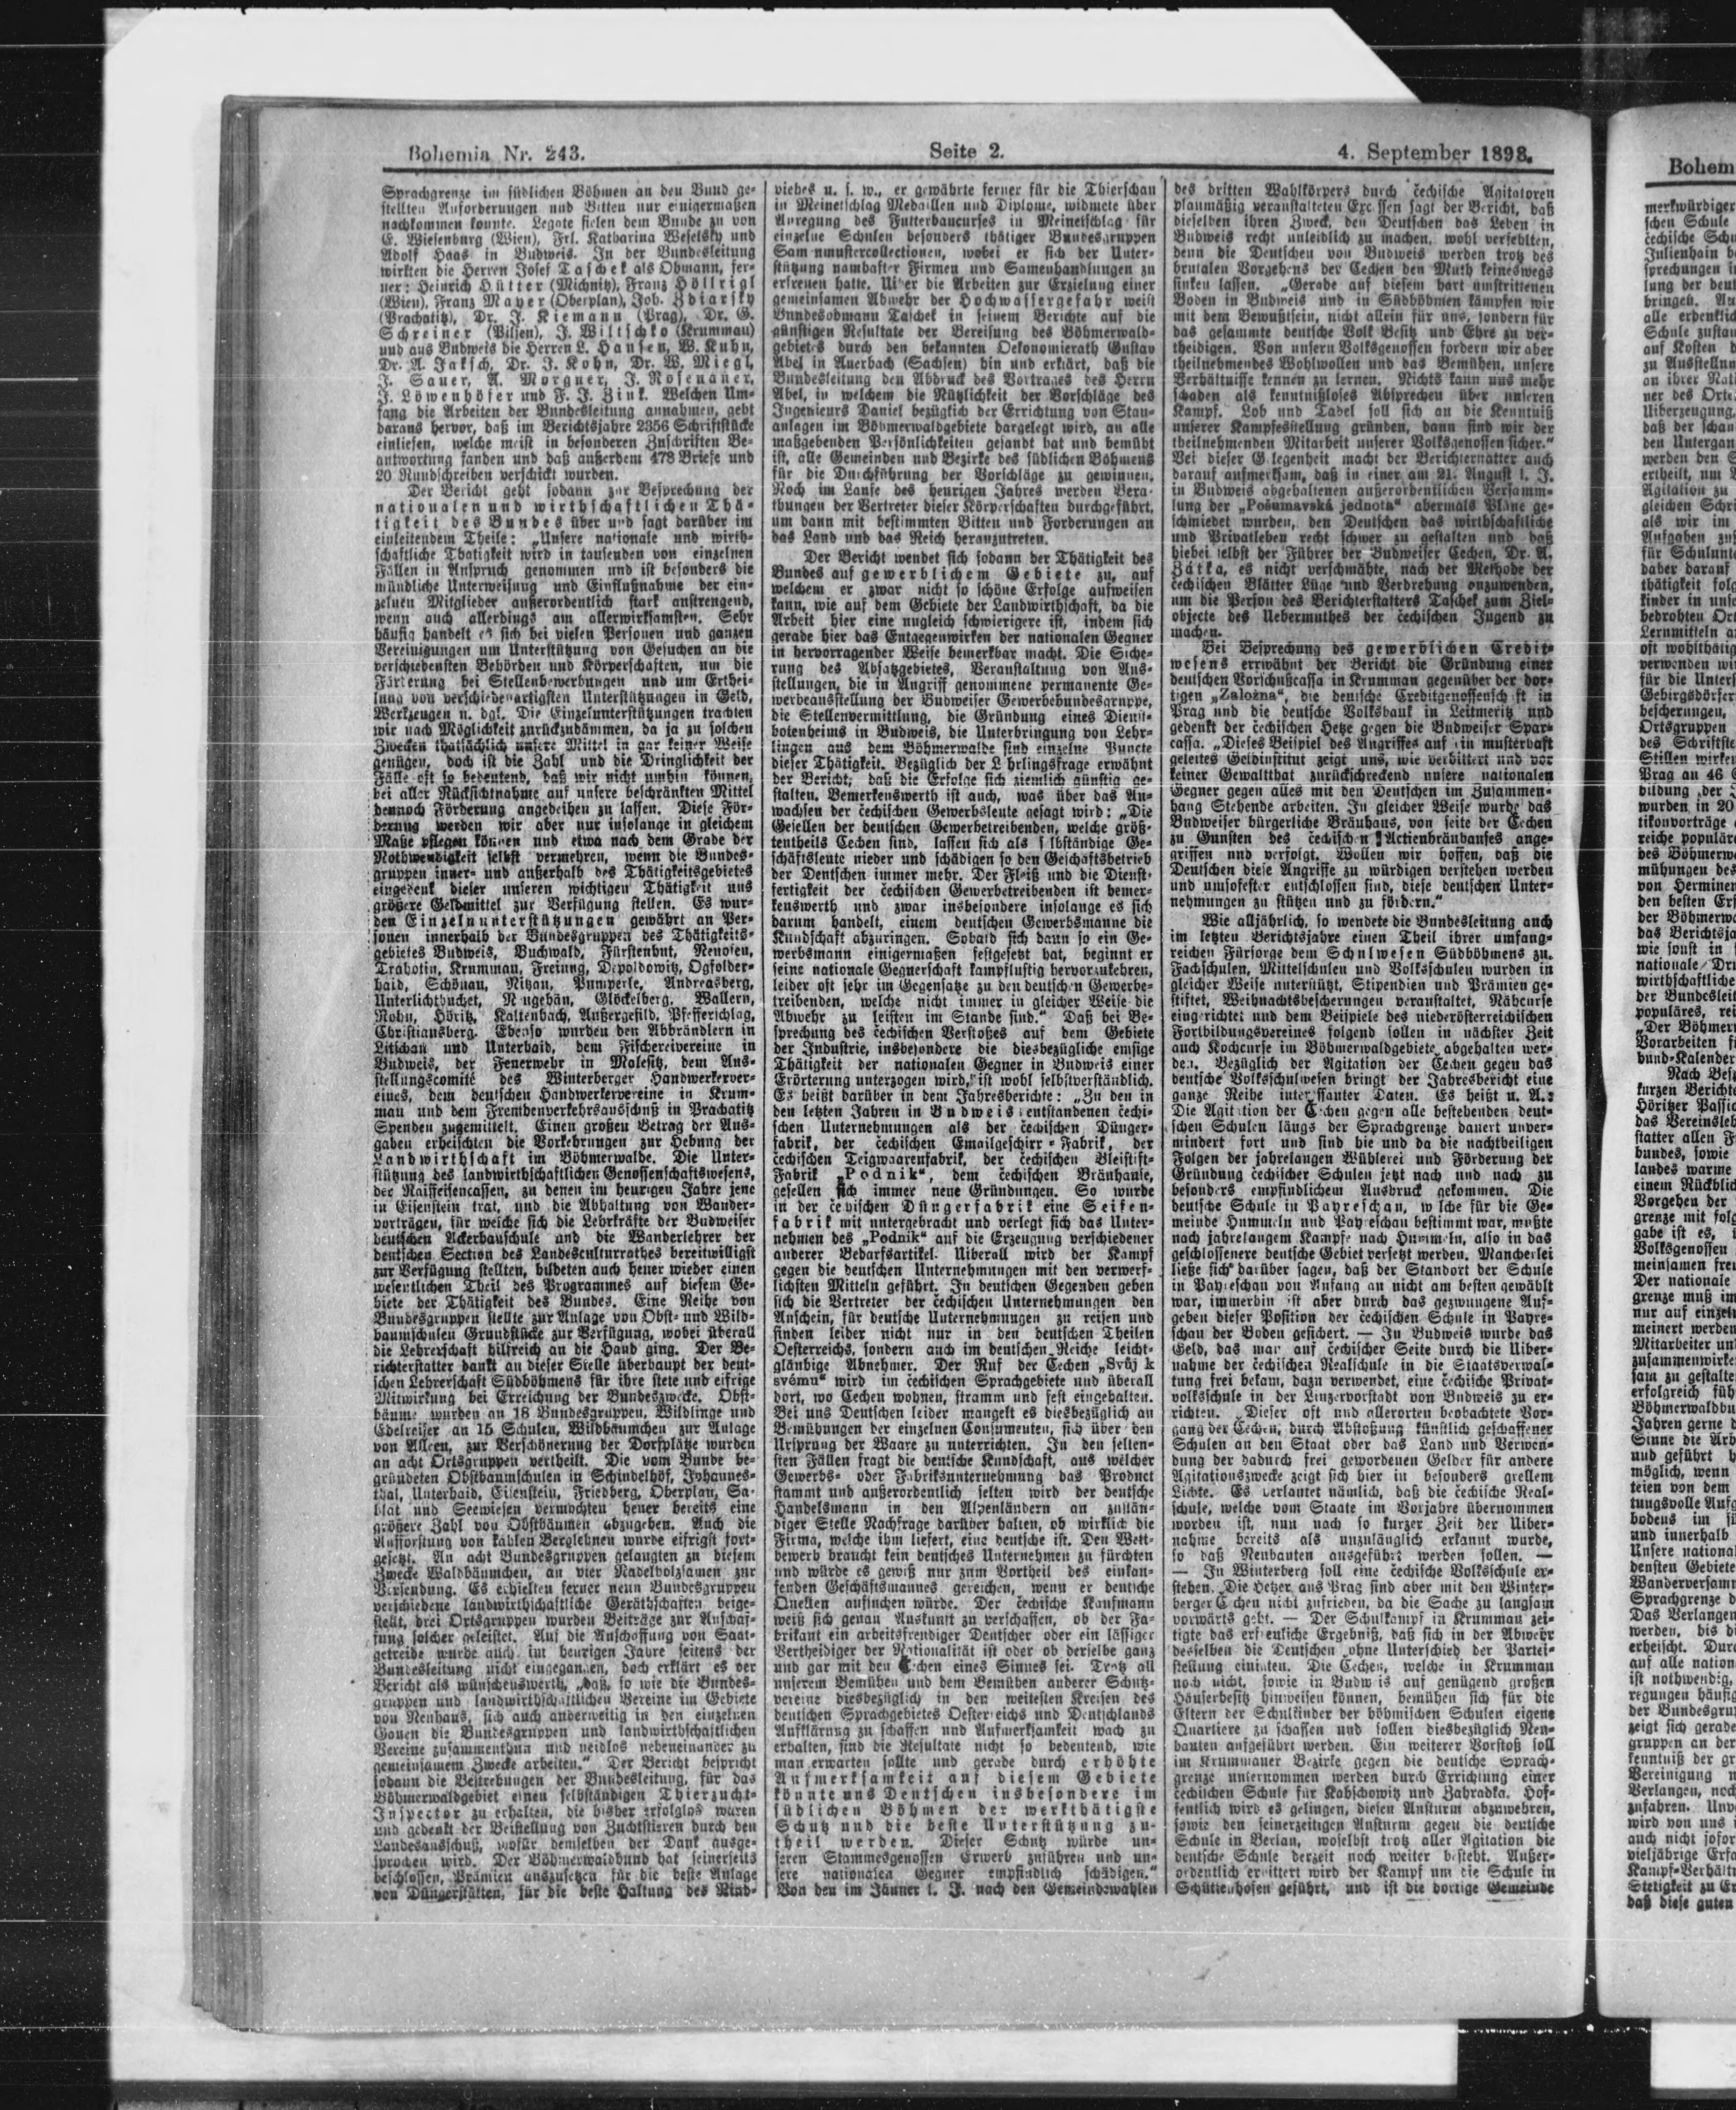 Bohemia Nr. 243.
Seite 2.
4. September 1898.
Sprachgrenze im südlichen Böhmen an den Bund ge-
stellten Anforderungen und Bitten nur einigermaßen
nachkommen konnte. Legate fielen dem Bunde zu von
E. Wiesenburg (Wien), Frl. Katharina Weselsky und
Adolf Haas in Budweis. In der Bundesleitung
wirkten die Herren Josef Taschek als Obmann, fer-
ner: Heinrich Hütter (Michnitz), Franz Höllrigl
(Wien), Franz Mayer (Oberplan), Joh. Zdiarsky
(Prachatitz), Dr. J. Kiemann (Prag), Dr. G.
Schreiner (Pilsen), J. Wiltschko (Krummau)
und aus Budweis die Herren L. Hansen, W. Kuhn,
Dr. A. Jaksch, Dr. J. Kohn, Dr. W. Miegl,
J. Sauer, A. Morgner, J. Rosenauer,
J. Löwenhöfer und F. J. Zink. Welchen Um-
fang die Arbeiten der Bundesleitung annahmen, geht
daraus hervor, daß im Berichtsjahre 2356 Schriftstücke
einliefen, welche meist in besonderen Zuschriften Be-
antwortung fanden und daß außerdem 478 Briefe und
20 Rundschreiben verschickt wurden.
Der Bericht geht sodann zur Besprechung der
nationalen und wirthschaftlichen Thä-
tigkeit des Bundes über und sagt darüber im
einleitendem Theile: „Unsere nationale und wirth-
schaftliche Thätigkeit wird in tausenden von einzelnen
Fällen in Anspruch genommen und ist besonders die
mündliche Unterweisung und Einflußnahme der ein-
zelnen Mitglieder außerordentlich stark anstrengend,
wenn auch allerdings am allerwirksamsten. Sehr
häufig handelt es sich bei vielen Personen und ganzen
Vereinigungen um Unterstützung von Gesuchen an die
verschiedensten Behörden und Körperschaften, um die
Förderung bei Stellenbewerbungen und um Erthei-
lung von verschiedenartigsten Unterstützungen in Geld,
Werkzeugen u. dgl. Die Einzelunterstützungen trachten
wir nach Möglichkeit zurückzudämmen, da ja zu solchen
Zwecken thatsächlich unsere Mittel in gar keiner Weise
genügen, doch ist die Zahl und die Dringlichkeit der
Fälle oft so bedeutend, daß wir nicht umhin können,
bei aller Rücksichtnahme auf unsere beschränkten Mittel
dennoch Förderung angedeihen zu lassen. Diese För-
derung werden wir aber nur insolange in gleichem
Maße pflegen können und etwa nach dem Grade der
Nothwendigkeit selbst vermehren, wenn die Bundes-
gruppen inner- und außerhalb des Thätigkeitsgebietes
eingedenk dieser unseren wichtigen Thätigkeit uns
größere Geldmittel zur Verfügung stellen. Es wur-
den Einzelnunterstützungen gewährt an Per-
sonen innerhalb der Bundesgruppen des Thätigkeits-
gebietes Budweis, Buchwald, Fürstenhut, Neuofen,
Trahotin, Krummau, Freiung, Depoldowitz, Ogfolder-
haid, Schönau, Nitzau, Pumperle, Andreasberg,
Unterlichtbuchet, Neugebäu, Glöckelberg, Wallern,
Rohn, Höritz, Kaltenbach, Außergefild, Pfefferschlag,
Christiansberg. Ebenso wurden den Abbrändlern in
Litschau und Unterhaid, dem Fischereivereine in
Budweis, der Feuerwehr in Malesitz, dem Aus-
stellungscomité des Winterberger Handwerkerver-
eines, dem deutschen Handwerkervereine in Krum-
mau und dem Fremdenverkehrsausschuß in Prachatitz
Spenden zugemittelt. Einen großen Betrag der Aus-
gaben erheischten die Vorkehrungen zur Hebung der
Landwirthschaft im Böhmerwalde. Die Unter-
stützung des landwirthschaftlichen Genossenschaftswesens,
der Raiffeisencassen, zu denen im heurigen Jahre jene
in Eisenstein trat, und die Abhaltung von Wander-
vorträgen, für welche sich die Lehrkräfte der Budweiser
deutschen Ackerbauschule und die Wanderlehrer der
deutschen Section des Landesculturrathes bereitwilligst
zur Verfügung stellten, bildeten auch heuer wieder einen
wesentlichen Theil des Programmes auf diesem Ge-
biete der Thätigkeit des Bundes. Eine Reihe von
Bundesgruppen stellte zur Anlage von Obst- und Wild-
baumschulen Grundstücke zur Verfügung, wobei überall
die Lehrerschaft hilfreich an die Hand ging. Der Be-
richterstatter dankt an dieser Stelle überhaupt der deut-
schen Lehrerschaft Südböhmens für ihre stete und eifrige
Mitwirkung bei Erreichung der Bundeszwecke. Obst-
bäume wurden an 18 Bundesgruppen, Wildlinge und
Edelreiser an 15 Schulen, Wildbäumchen zur Anlage
von Alleen, zur Verschönerung der Dorfplätze wurden
an acht Ortsgruppen vertheilt. Die vom Bunde be-
gründeten Obstbaumschulen in Schindelhöf, Johannes-
thal, Unterhaid, Eisenstein, Friedberg, Oberplan, Sa-
blat und Seewiesen vermochten heuer bereits eine
größere Zahl von Obstbäumen abzugeben. Auch die
Aufforstung von kahlen Berglehnen wurde eifrigst fort-
gesetzt. An acht Bundesgruppen gelangten zu diesem
Zwecke Waldbäumchen, an vier Nadelholzsamen zur
Versendung. Es erhielten ferner neun Bundesgruppen
verschiedene landwirthschaftliche Geräthschaften beige-
stellt, drei Ortsgruppen wurden Beiträge zur Anschaf-
fung solcher geleistet. Auf die Anschaffung von Saat-
getreide wurde auch im heurigen Jahre seitens der
Bundesleitung nicht eingegangen, doch erklärt es der
Bericht als wünschenswerth, „daß, so wie die Bundes-
gruppen und landwirthschaftlichen Vereine im Gebiete
von Neuhaus, sich auch anderweitig in den einzelnen
Gauen die Bundesgruppen und landwirthschaftlichen
Vereine zusammenthun und neidlos nebeneinander zu
gemeinsamem Zwecke arbeiten.“ Der Bericht bespricht
sodann die Bestrebungen der Bundesleitung, für das
Böhmerwaldgebiet einen selbständigen Thierzucht-
Inspector zu erhalten, die bisher erfolglos waren
und gedenkt der Beistellung von Zuchtstieren durch den
Landesausschuß, wofür demselben der Dank ausge-
sprochen wird. Der Böhmerwaldbund hat seinerseits
beschlossen, Prämien auszusetzen für die beste Anlage
von Düngerstätten, für die beste Haltung des Rind-
viehes u. s. w., er gewährte ferner für die Thierschau
in Meinetschlag Medaillen und Diplome, widmete über
Anregung des Futterbaucurses in Meinetschlag für
einzelne Schulen besonders thätiger Bundesgruppen
Samenmustercollectionen, wobei er sich der Unter-
stützung namhafter Firmen und Samenhandlungen zu
erfreuen hatte. Ueber die Arbeiten zur Erzielung einer
gemeinsamen Abwehr der Hochwassergefahr weist
Bundesobmann Taschek in seinem Berichte auf die
günstigen Resultate der Bereisung des Böhmerwald-
gebietes durch den bekannten Oekonomierath Gustav
Abel in Auerbach (Sachsen) hin und erklärt, daß die
Bundesleitung den Abdruck des Vortrages des Herrn
Abel, in welchem die Nützlichkeit der Vorschläge des
Ingenieurs Daniel bezüglich der Errichtung von Stau-
anlagen im Böhmerwaldgebiete dargelegt wird, an alle
maßgebenden Persönlichkeiten gesandt hat und bemüht
ist, alle Gemeinden und Bezirke des südlichen Böhmens
für die Durchführung der Vorschläge zu gewinnen.
Noch im Laufe des heurigen Jahres werden Bera-
thungen der Vertreter dieser Körperschaften durchgeführt,
um dann mit bestimmten Bitten und Forderungen an
das Land und das Reich heranzutreten.
Der Bericht wendet sich sodann der Thätigkeit des
Bundes auf gewerblichem Gebiete zu, auf
welchem er zwar nicht so schöne Erfolge aufweisen
kann, wie auf dem Gebiete der Landwirthschaft, da die
Arbeit hier eine ungleich schwierigere ist, indem sich
gerade hier das Entgegenwirken der nationalen Gegner
in hervorragender Weise bemerkbar macht. Die Siche-
rung des Absatzgebietes, Veranstaltung von Aus-
stellungen, die in Angriff genommene permanente Ge-
werbeausstellung der Budweiser Gewerbebundesgruppe,
die Stellenvermittlung, die Gründung eines Dienst-
botenheims in Budweis, die Unterbringung von Lehr-
lingen aus dem Böhmerwalde sind einzelne Puncte
dieser Thätigkeit. Bezüglich der Lehrlingsfrage erwähnt
der Bericht, daß die Erfolge sich ziemlich günstig ge-
stalten. Bemerkenswerth ist auch, was über das An-
wachsen der čechischen Gewerbsleute gesagt wird: „Die
Gesellen der deutschen Gewerbetreibenden, welche größ-
tentheils Čechen sind, lassen sich als selbständige Ge-
schäftsleute nieder und schädigen so den Geschäftsbetrieb
der Deutschen immer mehr. Der Fleiß und die Dienst-
fertigkeit der čechischen Gewerbetreibenden ist bemer-
kenswerth und zwar insbesondere insolange es sich
darum handelt, einem deutschen Gewerbsmanne die
Kundschaft abzuringen. Sobald sich dann so ein Ge-
werbsmann einigermaßen festgesetzt hat, beginnt er
seine nationale Gegnerschaft kampflustig hervorzukehren,
leider oft sehr im Gegensatze zu den deutschen Gewerbe-
treibenden, welche nicht immer in gleicher Weise die
Abwehr zu leisten im Stande sind.“ Daß bei Be-
sprechung des čechischen Vorstoßes auf dem Gebiete
der Industrie, insbesondere die diesbezügliche emsige
Thätigkeit der nationalen Gegner in Budweis einer
Erörterung unterzogen wird, ist wohl selbstverständlich.
Es heißt darüber in dem Jahresberichte: „Zu den in
den letzten Jahren in Budweis entstandenen čechi-
schen Unternehmungen als der čechischen Dünger-
fabrik, der čechischen Emailgeschirr-Fabrik, der
čechischen Teigwaarenfabrik, der čechischen Bleistift-
Fabrik „Podnik“, dem čechischen Bräuhause,
gesellen sich immer neue Gründungen. So wurde
in der čechischen Düngerfabrik eine Seifen-
fabrik mit untergebracht und verlegt sich das Unter-
nehmen des „Podnik“ auf die Erzeugung verschiedener
anderer Bedarfsartikel. Überall wird der Kampf
gegen die deutschen Unternehmungen mit den verwerf-
lichsten Mitteln geführt. In deutschen Gegenden geben
sich die Vertreter der čechischen Unternehmungen den
Anschein, für deutsche Unternehmungen zu reisen und
finden leider nicht nur in den deutschen Theilen
Oesterreichs, sondern auch im deutschen Reiche leicht-
gläubige Abnehmer. Der Ruf der Čechen „Svůj k
svému“ wird im čechischen Sprachgebiete und überall
dort, wo Čechen wohnen, stramm und fest eingehalten.
Bei uns Deutschen leider mangelt es diesbezüglich an
Bemühungen der einzelnen Consumenten, sich über den
Ursprung der Waare zu unterrichten. In den selten-
sten Fällen fragt die deutsche Kundschaft, aus welcher
Gewerbs- oder Fabriksunternehmung das Product
stammt und außerordentlich selten wird der deutsche
Handelsmann in den Alpenländern an zustän-
diger Stelle Nachfrage darüber halten, ob wirklich die
Firma, welche ihm liefert, eine deutsche ist. Den Wett-
bewerb braucht kein deutsches Unternehmen zu fürchten
und würde es gewiß nur zum Vortheil des einkau-
fenden Geschäftsmannes gereichen, wenn er deutsche
Quellen aufsuchen würde. Der čechische Kaufmann
weiß sich genau Auskunft zu verschaffen, ob der Fa-
brikant ein arbeitsfreudiger Deutscher oder ein lässiger
Vertheidiger der Nationalität ist oder ob derselbe ganz
und gar mit den Čechen eines Sinnes sei. Trotz all
unserem Bemühen und dem Bemühen anderer Schutz-
vereine diesbezüglich in den weitesten Kreisen des
deutschen Sprachgebietes Oesterreichs und Deutschlands
Aufklärung zu schaffen und Aufmerksamkeit wach zu
erhalten, sind die Resultate nicht so bedeutend, wie
man erwarten sollte und gerade durch erhöhte
Aufmerksamkeit auf diesem Gebiete
könnte uns Deutschen insbesondere im
südlichen Böhmen der werkthätigste
Schutz und die beste Unterstützung zu-
theil werden. Dieser Schutz würde un-
seren Stammesgenossen Erwerb zuführen und un-
sere nationalen Gegner empfindlich schädigen.“
Von den im Jänner l. J. nach den Gemeindewahlen
des dritten Wahlkörpers durch čechische Agitatoren
planmäßig veranstalteten Excessen sagt der Bericht, daß
dieselben ihren Zweck, den Deutschen das Leben in
Budweis recht unleidlich zu machen, wohl verfehlten,
denn die Deutschen von Budweis werden trotz des
brutalen Vorgehens der Čechen den Muth keineswegs
sinken lassen. „Gerade auf diesem hart umstrittenen
Boden in Budweis und in Südböhmen kämpfen wir
mit dem Bewußtsein, nicht allein für uns, sondern für
das gesammte deutsche Volk Besitz und Ehre zu ver-
theidigen. Von unsern Volksgenossen fordern wir aber
theilnehmendes Wohlwollen und das Bemühen, unsere
Verhältnisse kennen zu lernen. Nichts kann uns mehr
schaden als kenntnißloses Absprechen über unseren
Kampf. Lob und Tadel soll sich an die Kenntniß
unserer Kampfesstellung gründen, dann sind wir der
theilnehmenden Mitarbeit unserer Volksgenossen sicher.“
Bei dieser Gelegenheit macht der Berichterstatter auch
darauf aufmerksam, daß in einer am 21. August l. J.
in Budweis abgehaltenen außerordentlichen Versamm-
lung der „Pošumavská jednota“ abermals Pläne ge-
schmiedet wurden, den Deutschen das wirthschaftliche
und Privatleben recht schwer zu gestalten und daß
hiebei selbst der Führer der Budweiser Čechen, Dr. A.
Zátka, es nicht verschmähte, nach der Methode der
čechischen Blätter Lüge und Verdrehung anzuwenden,
um die Person des Berichterstatters Taschek zum Ziel-
objecte des Uebermuthes der čechischen Jugend zu
machen.
Bei Besprechung des gewerblichen Credit-
wesens errwähnt der Bericht die Gründung einer
deutschen Vorschußcassa in Krummau gegenüber der dor-
tigen „Založna“, die deutsche Creditgenossenschaft in
Prag und die deutsche Volksbank in Leitmeritz und
gedenkt der čechischen Hetze gegen die Budweiser Spar-
cassa. „Dieses Beispiel des Angriffes auf ein musterhaft
geleites Geldinstitut zeigt uns, wie verbittert und vor
keiner Gewaltthat zurückschreckend unsere nationalen
Gegner gegen alles mit den Deutschen im Zusammen-
hang Stehende arbeiten. In gleicher Weise wurde das
Budweiser bürgerliche Bräuhaus, von seite der Čechen
zu Gunsten des čechischen Actienbräuhauses ange-
griffen und verfolgt. Wollen wir hoffen, daß die
Deutschen diese Angriffe zu würdigen verstehen werden
und umsofester entschlossen sind, diese deutschen Unter-
nehmungen zu stützen und zu fördern.“
Wie alljährlich, so wendete die Bundesleitung auch
im letzten Berichtsjahre einen Theil ihrer umfang-
reichen Fürsorge dem Schulwesen Südböhmens zu.
Fachschulen, Mittelschulen und Volksschulen wurden in
gleicher Weise unterstützt, Stipendien und Prämien ge-
stiftet, Weihnachtsbescherungen veranstaltet, Nähcurse
eingerichtet und dem Beispiele des niederösterreichischen
Fortbildungsvereines folgend sollen in nächster Zeit
auch Kochcurse im Böhmerwaldgebiete abgehalten wer-
den. Bezüglich der Agitation der Čechen gegen das
deutsche Volksschulwesen bringt der Jahresbericht eine
ganze Reihe interessanter Daten. Es heißt u. A.:
Die Agitation der Čechen gegen alle bestehenden deut-
schen Schulen längs der Sprachgrenze dauert unver-
mindert fort und sind hie und da die nachtheiligen
Folgen der jahrelangen Wühlerei und Förderung der
Gründung čechischer Schulen jetzt nach und nach zu
besonders empfindlichem Ausbruck gekommen. Die
deutsche Schule in Payreschau, welche für die Ge-
meinde Hummeln und Payreschau bestimmt war, mußte
nach jahrelangem Kampfe nach Hummeln, also in das
geschlossenere deutsche Gebiet versetzt werden. Mancherlei
ließe sich darüber sagen, daß der Standort der Schule
in Payreschau von Anfang an nicht am besten gewählt
war, immerhin ist aber durch das gezwungene Auf-
geben dieser Position der čechischen Schule in Payre-
schau der Boden gesichert. — In Budweis wurde das
Geld, das man auf čechischer Seite durch die Über-
nahme der čechischen Realschule in die Staatsverwal-
tung frei bekam, dazu verwendet, eine čechische Privat-
volksschule in der Linzervorstadt von Budweis zu er-
richten. Dieser oft und allerorten beobachtete Vor-
gang der Čechen, durch Abstoßung künstlich geschaffener
Schulen an den Staat oder das Land und Verwen-
dung der dadurch frei gewordenen Gelder für andere
Agitationszwecke zeigt sich hier in besonders grellem
Lichte. Es verlautet nämlich, daß die čechische Real-
schule, welche vom Staate im Vorjahre übernommen
worden ist, nun nach so kurzer Zeit der Über-
nahme bereits als unzulänglich erkannt wurde,
so daß Neubauten ausgeführt werden sollen. —
— In Winterberg soll eine čechische Volksschule er-
stehen. Die Hetzer aus Prag sind aber mit den Winter-
berger Čechen nicht zufrieden, da die Sache zu langsam
vorwärts geht. — Der Schulkampf in Krummau zei-
tigte das erfreuliche Ergebniß, daß sich in der Abwehr
desselben die Deutschen ohne Unterschied der Partei-
stellung einigten. Die Čechen, welche in Krummau
noch nicht, sowie in Budweis auf genügend großen
Häuserbesitz hinweisen können, bemühen sich für die
Eltern der Schulkinder der böhmischen Schulen eigene
Quartiere zu schaffen und sollen diesbezüglich Neu-
bauten aufgeführt werden. Ein weiterer Vorstoß soll
im Krummauer Bezirke gegen die deutsche Sprach-
grenze unternommen werden durch Errichtung einer
čechischen Schule für Kabschowitz und Zahradka. Hof-
fentlich wird es gelingen, diesen Ansturm abzuwehren,
sowie den seinerzeitigen Ansturm gegen die deutsche
Schule in Berlau, woselbst trotz aller Agitation die
deutsche Schule derzeit noch weiter besteht. Außer-
ordentlich erbittert wird der Kampf um die Schule in
Schüttenhofen geführt, und ist die dortige Gemeinde
Bohem